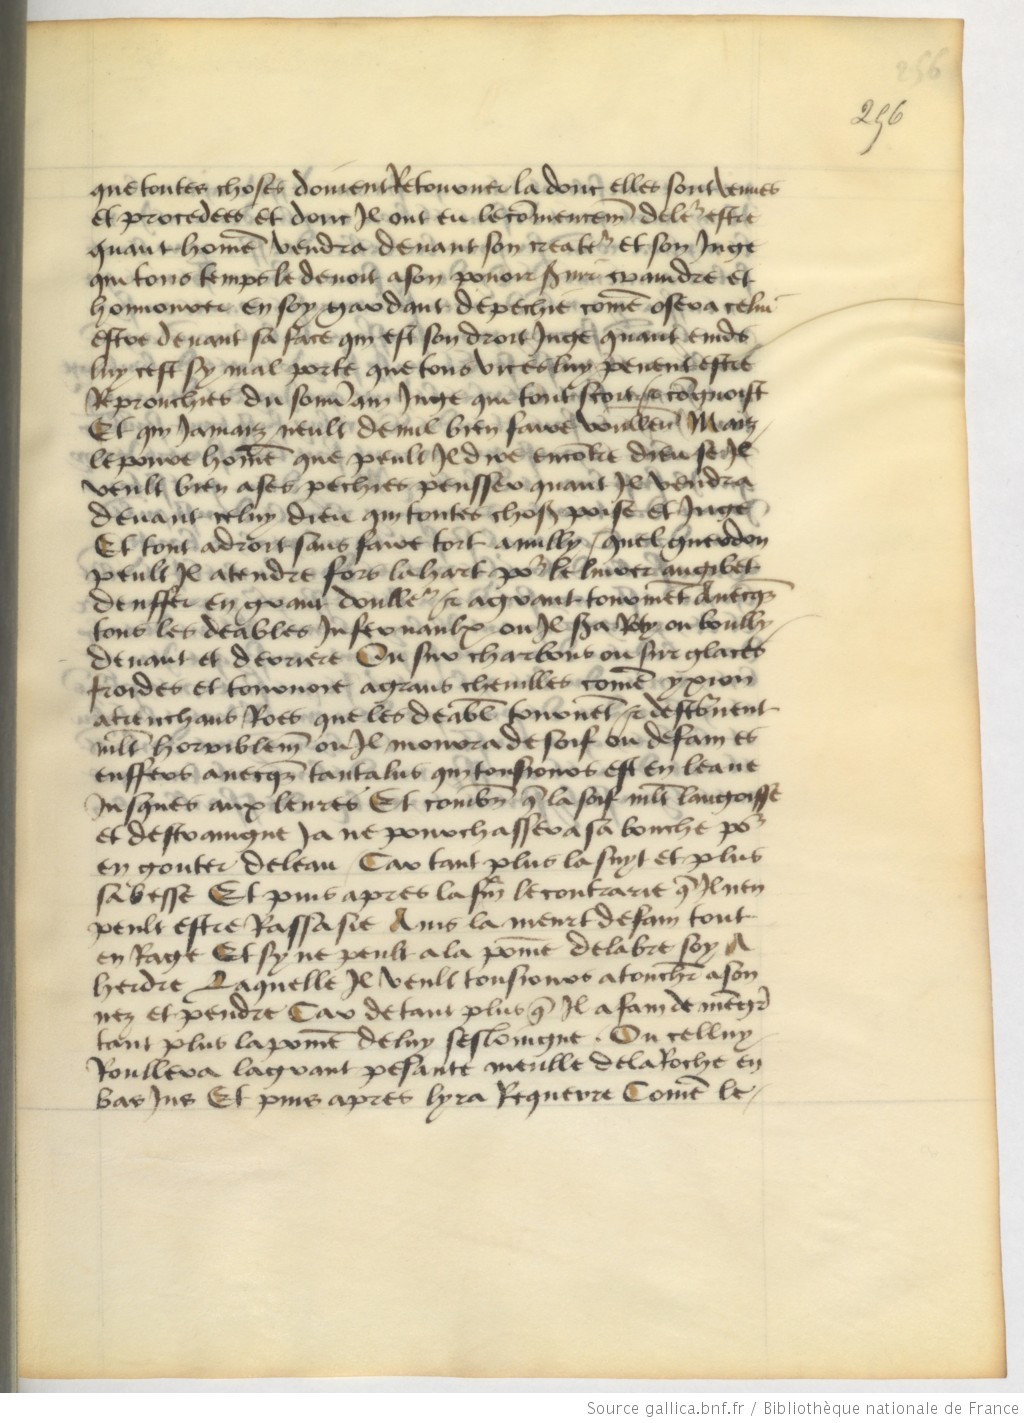 256
256
que toutes choses doivent Retourner la donc elles sont venues
et procedees et donc Il ont eu le cōmencem̄ de le' estre
quant homē vendra devant son create' et son Juge
qui tous temps le devoit a son povoir craindre et
honnourer en soy gardant de pechie comē osera celui
estre devant sa face qui est son droit Juge quant envers
luy cest sy mal porte que tous vices luy pevent estre
Reprouchies du Juge qui tout scet et cōgnoist
Et qui Jamaiz neult de mil bien faire voullen Maiz
le povre homē que peult Il dire encōtre dieu se Il
veult bien a ses pechies pensser quant Il vendra
devant celuy dieu qui toutes chos poise et Juge
Et tout adroit sans faire tort a nully quel guerdon
peult Il atendre fors la hart po' le livrer au gibet
denffer en grant doulle' et a grant tourmēt Avecq
tous les deables Infernaulx ou Il sera Roty ou boully
devant et derriere Ou sur charbons ou sur glaces
froides et tournoie a grans chevilles comē yxion
a trenchans Roes que les deabl tournēt et destournent
mlt horriblem̄ ou Il mourra de soif ou de fam es
enffers avecq tantalus qui tousiours est en leaue
Jusques aux levres Et comb̄n q̄ la soif mlt langoisse
et destraingne Ja ne pourchassera sa bouche po'
en gouter de leau Car tant plus la suyt et plus
sabesse Et puis apres la fm̄ le contrarie q̄ Il nen
peult estre Rassasie Ains la meurt de fam tout
en Rage Et sy ne peult a la pomē de labre soy A
herdre Laquelle Il veult tousiours a touch̄r a son
nez et pendre Car de tant plus q̄ Il a fam de mēgr̄
tant plus la pomē de luy seslongne . Ou celluy
Roullera la grant pesante meulle de la Roche en
bas Jus Et puis apres lyra Requerre Comē le
Source gallica.bnf.fr / Bibliothèque nationale de France